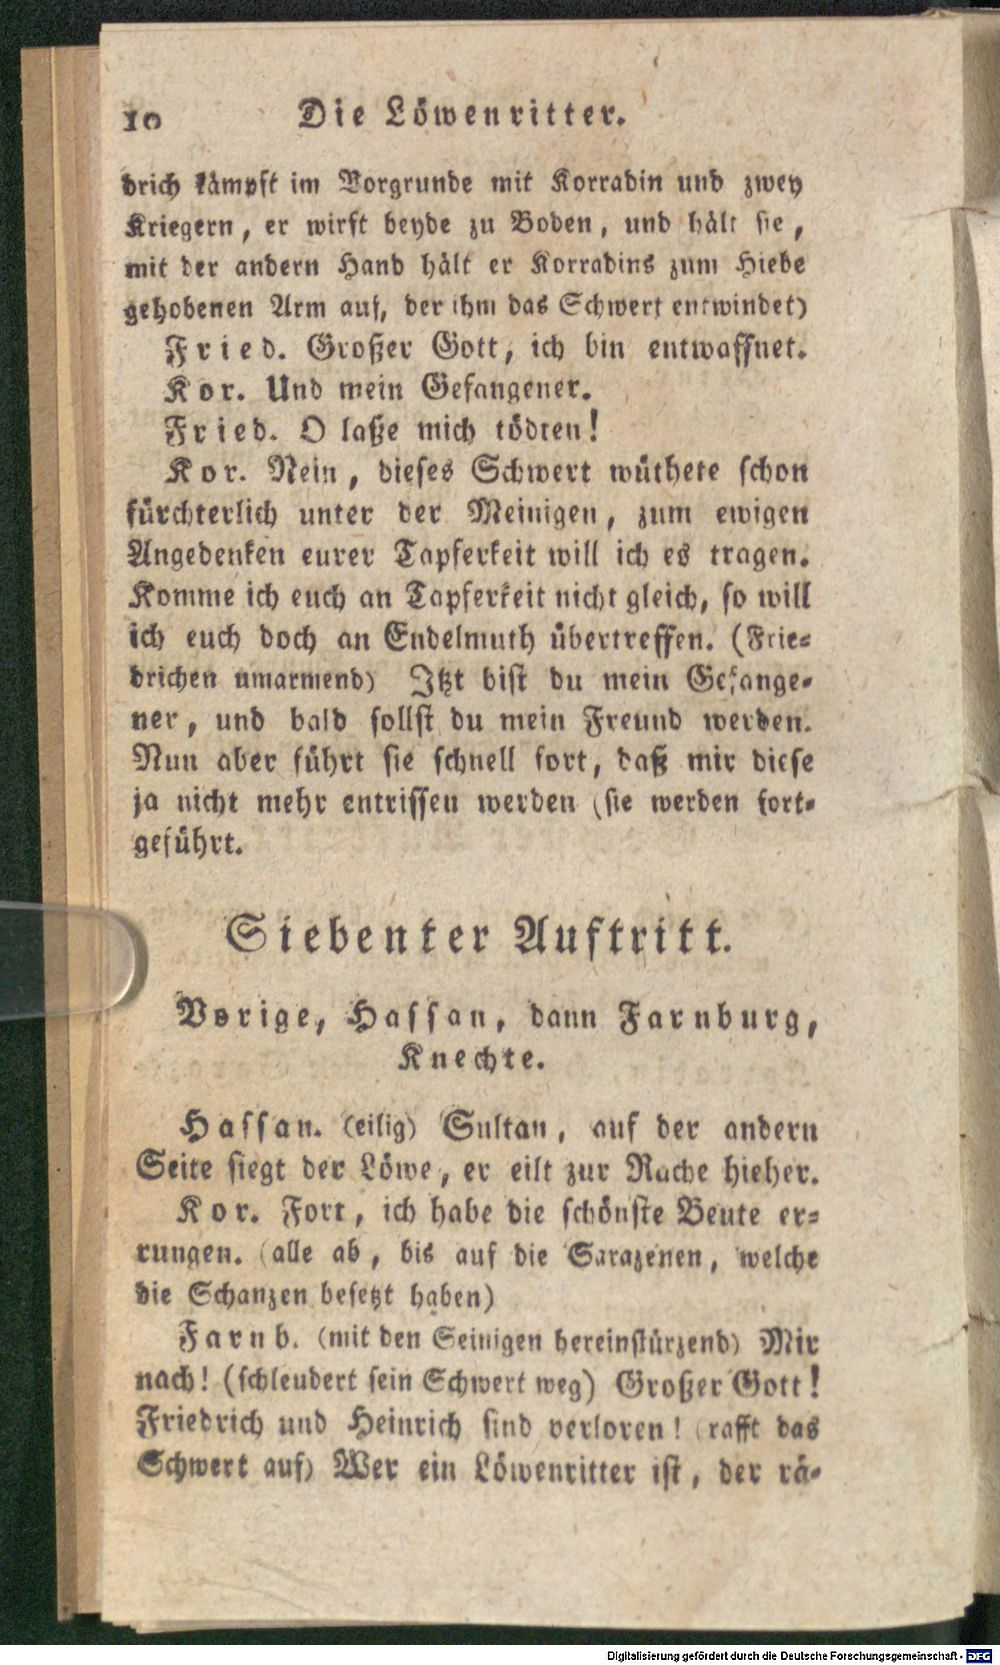 10 Die Löwenritter.
drich kämpft im Vorgrunde mit Korradin und zwey
Kriegern, er wirft beyde zu Boden, und hält sie,
mit der andern Hand hält er Korradins zum Hiebe
gehobenen Arm auf, der ihm das Schwert entwindet)
Fried. Großer Gott, ich bin entwaffnet.
Kor. Und mein Gefangener.
Fried. O laße mich tödten!
Kor. Nein, dieses Schwert wüthete schon
fürchterlich unter der Meinigen, zum ewigen
Angedenken eurer Tapferkeit will ich es tragen.
Komme ich euch an Tapferkeit nicht gleich, so will
ich euch doch an Endelmuth übertreffen. (Frie-
drichen umarmend) Itzt bist du mein Gefange-
ner, und bald sollst du mein Freund werden.
Nun aber führt sie schnell fort, daß mir diese
ja nicht mehr entrissen werden (sie werden fort-
geführt.
Siebenter Auftritt.
Vorige, Hassan, dann Farnburg,
Knechte.
Hassan. (eilig) Sultan, auf der andern
Seite siegt der Löwe, er eilt zur Rache hieher.
Kor. Fort, ich habe die schönste Beute er-
rungen. (alle ab, bis auf die Sarazenen, welche
die Schanzen besetzt haben)
Farnb. (mit den Seinigen hereinstürzend) Mir
nach! (schleudert sein Schwert weg) Großer Gott!
Friedrich und Heinrich sind verloren! (rafft das
Schwert auf) Wer ein Löwenritter ist, der rä-
Digitalisierung gefördert durch die Deutsche Forschungsgemeinschaft - DFG